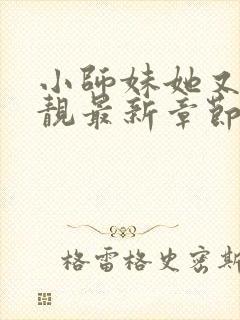 小師妹她又
靚最新章節
格雷格史密斯